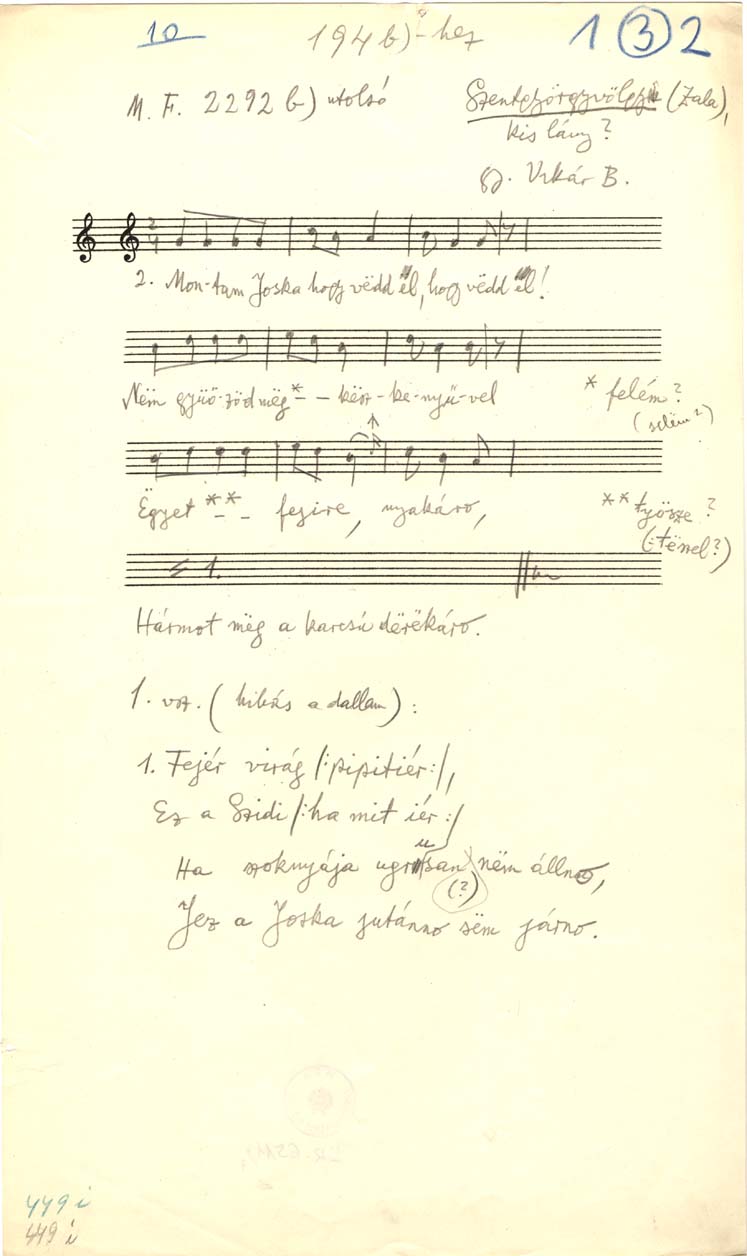 10
194 b)-hez
1 3 2
M. F. 2292 b) utolsó
Szentgyörgyvölgy (Zala),
kis lány?
gy. Vikár B.
2/4
2. Mon-tam Joska hogy vëdd ël, hogy vëdd ël!
Nëm győ-zöd mëg * - - kësz-ke-nyű-vel
* felém?
(selëm?)
Ëgyet ** - - fejire, nyakáro,
** työsze?
(:tënnel?)
1.
Hármot mëg a karcsú dërëkáro.
1. vsz. (hibás a dallam):
1. Fejér virág /:pipitiér:/,
Ez a Szidi /:ha mit iér:/
Ha szoknyája ugrusan nëm állno,
(?)
Jez a Joska jutánno sëm járno.
449 i
449 i